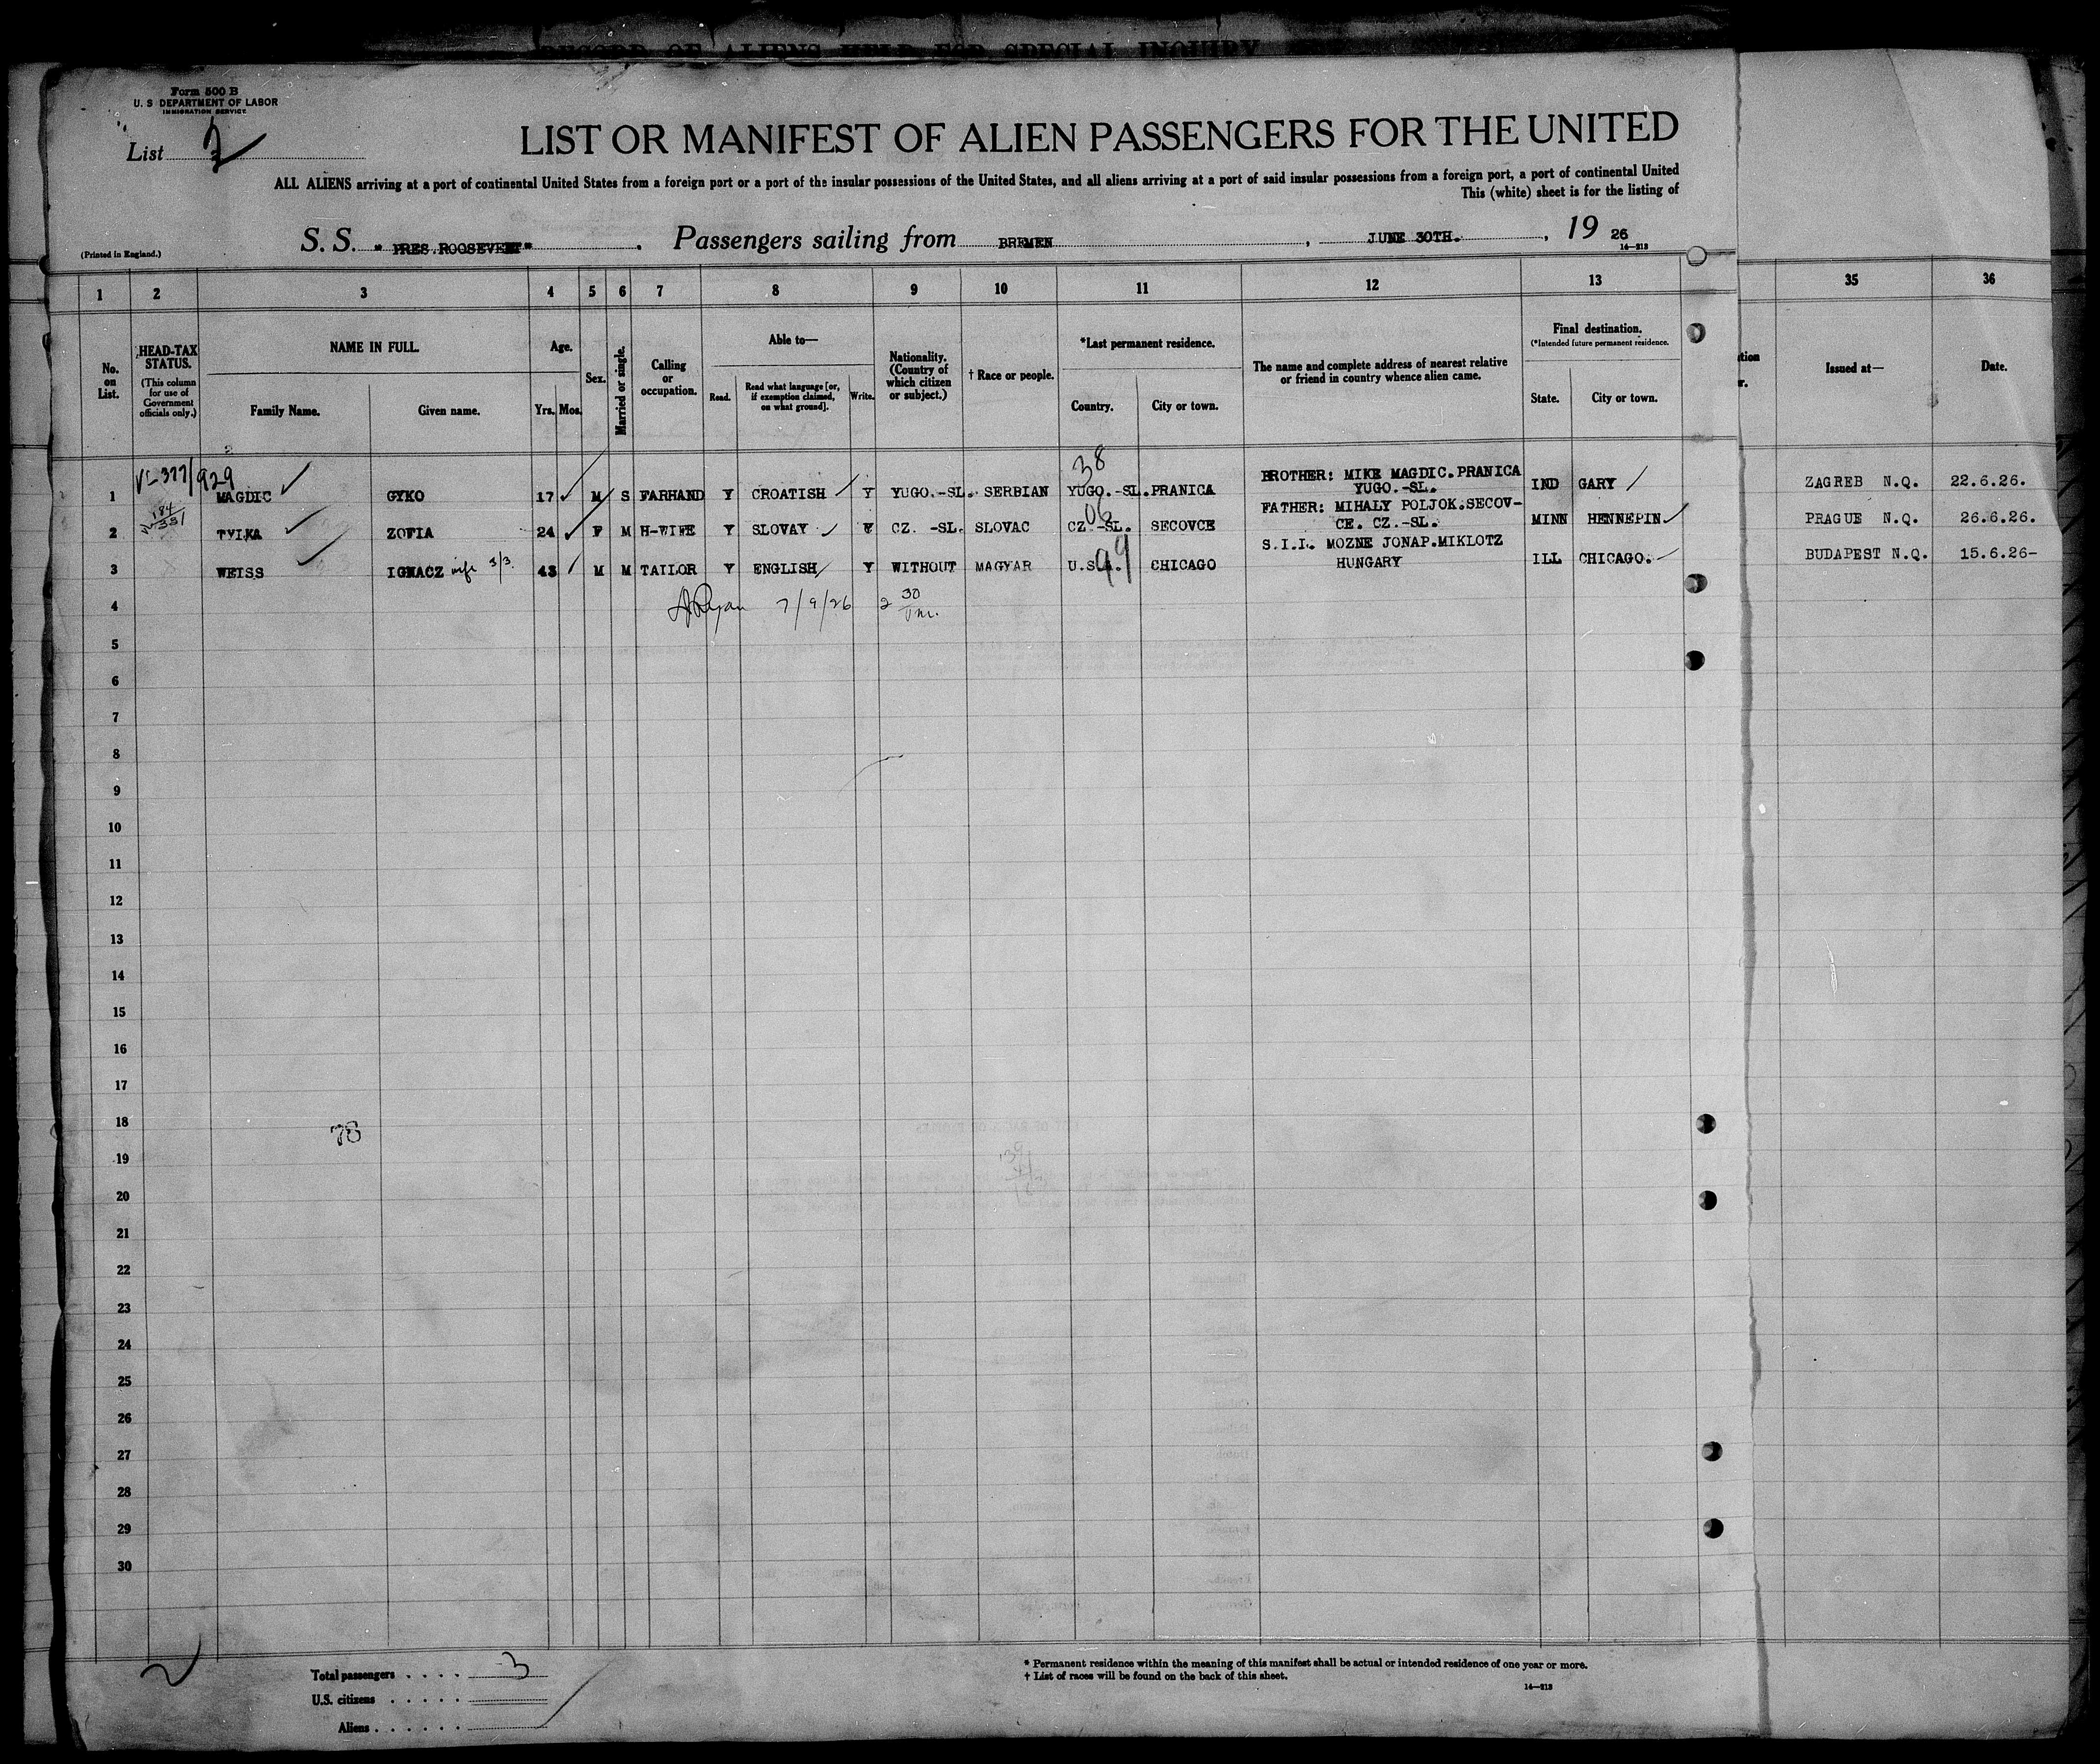 RECORD OF ALIENS HELD FOR SPECIAL INQUIRY
Form 500 B
U. S DEPARTMENT OF LABOR
IMMIGRATION SERVICE
List 2
LIST OR MANIFEST OF ALIEN PASSENGERS FOR THE UNITED
ALL ALIENS arriving at a port of continental United States from a foreign port or a port of the insular possessions of the United States, and all aliens arriving at a port of said insular possessions from a foreign port, a port of continental United
This (white) sheet is for the listing of
(Printed in England.)
S. S. "PRES.ROOSEVELT" , Passengers sailing from BREMEN , JUNE 30TH. , 19 26
14—213
1 2 3 4 5 6 7 8 9 10 11 12 13 35 36
No. on List.
HEAD-TAX STATUS.
(This column for use of Government officials only.)
NAME IN FULL.
Family Name. Given name.
Age.
Yrs. Mos.
Sex.
Married or single.
Calling or occupation.
Able to—
Read. Read what language [or, if exemption claimed, on what ground]. Write.
Nationality. (Country of which citizen or subject.)
† Race or people.
*Last permanent residence.
Country. City or town.
The name and complete address of nearest relative or friend in country whence alien came.
Final destination.
(*Intended future permanent residence.
State. City or town.
Issued at—
Date.
377/929
38
1 MAGDIC GYKO 17 M S FARHAND Y CROATISH Y YUGO.-SL. SERBIAN YUGO.-SL. PRANICA BROTHER: MIKE MAGDIC.PRANICA YUGO.-SL. IND GARY ZAGREB N.Q. 22.6.26.
184/331
06
2 TYLKA ZOFIA 24 F M H-WIFE Y SLOVAY Y CZ. -SL. SLOVAC CZ.-SL. SECOVCE FATHER: MIHALY POLJOK.SECOV-CE. CZ.-SL. MINN HENNEPIN PRAGUE N.Q. 26.6.26.
99
3 WEISS IGNACZ wife 3/3. 43 M M TAILOR Y ENGLISH Y WITHOUT MAGYAR U.S.A. CHICAGO S.I.L. MOZNE JONAP.MIKLOTZ HUNGARY ILL CHICAGO. BUDAPEST N.Q. 15.6.26-
4 Ryan 7/9/26 2 30 Pm.
5
6
7
8
9
10
11
12
13
14
15
16
17
18
78
19
20
21
22
23
24
25
26
27
28
29
30
2
Total passengers . . . . 3
U.S. citizens . . . . .
Aliens . . . . . .
* Permanent residence within the meaning of this manifest shall be actual or intended residence of one year or more.
† List of races will be found on the back of this sheet.
14—213